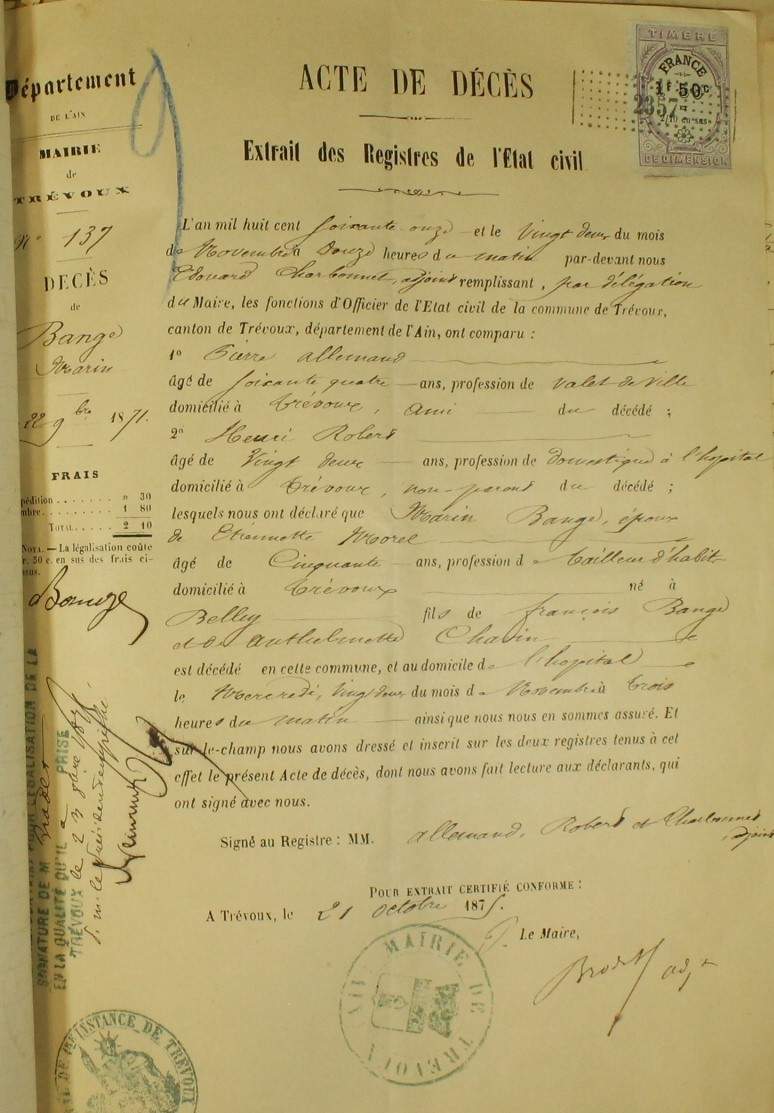 Département
DE L'AIN
MAIRIE
de
TRÉVOUX
N° 137
DÉCÈS
de
Bange
Marin
22 9bre 1871.
FRAIS
pédition . . . . . . . » 30
mbre. . . . . . . . . 1 80
TOTAL. . . . . 2 10
NOTA. — La légalisation coûte
r. 50 c. en sus des frais ci-
sus.
ACTE DE DÉCÈS
Extrait des Registres de l'Etat civil
TIMBRE
FRANCE
1f 50c
2/10 en sus
DE DIMENSION
2357
L'an mil huit cent soixante onze et le vingt deux du mois
de Novembre à Douze heures du matin par-devant nous
Edouard Charbonnet, adjoint remplissant, par délégation
du Maire, les fonctions d'Officier de l'Etat civil de la commune de Trévoux,
canton de Trévoux, département de l'Ain, ont comparu :
1° Pierre Allemand
âgé de soixante quatre ans, profession de valet de ville
domicilié à Trévoux, ami du décédé ;
2° Henri Robert
âgé de vingt deux ans, profession de domestique à l'hopital
domicilié à Trévoux, non parent du décédé ;
lesquels nous ont déclaré que Marin Bange, époux
de Etiennette Morel
âgé de Cinquante ans, profession d tailleur d'habit
domicilié à Trévoux né à
Belley fils de françois Bange
et de Anthelmette Chavin
est décédé en cette commune, et au domicile de l'hopital
le Mercredi, vingt deux du mois de Novembre à trois
heures du matin ainsi que nous nous en sommes assuré. Et
sur-le-champ nous avons dressé et inscrit sur les deux registres tenus à cet
effet le présent Acte de décès, dont nous avons fait lecture aux déclarants, qui
ont signé avec nous.
Signé au Registre : MM. Allemand, Robert et Charbonnet
adjoint
POUR EXTRAIT CERTIFIÉ CONFORME :
A Trévoux, le 21 octobre 1875.
P. Le Maire,
adjt
MAIRIE DE TREVOUX
LÉGALISATION DE LA
SIGNATURE DE M
EN LA QUALITÉ QU'IL A PRISE
TRÉVOUX le 23
INSTANCE DE TREVOUX